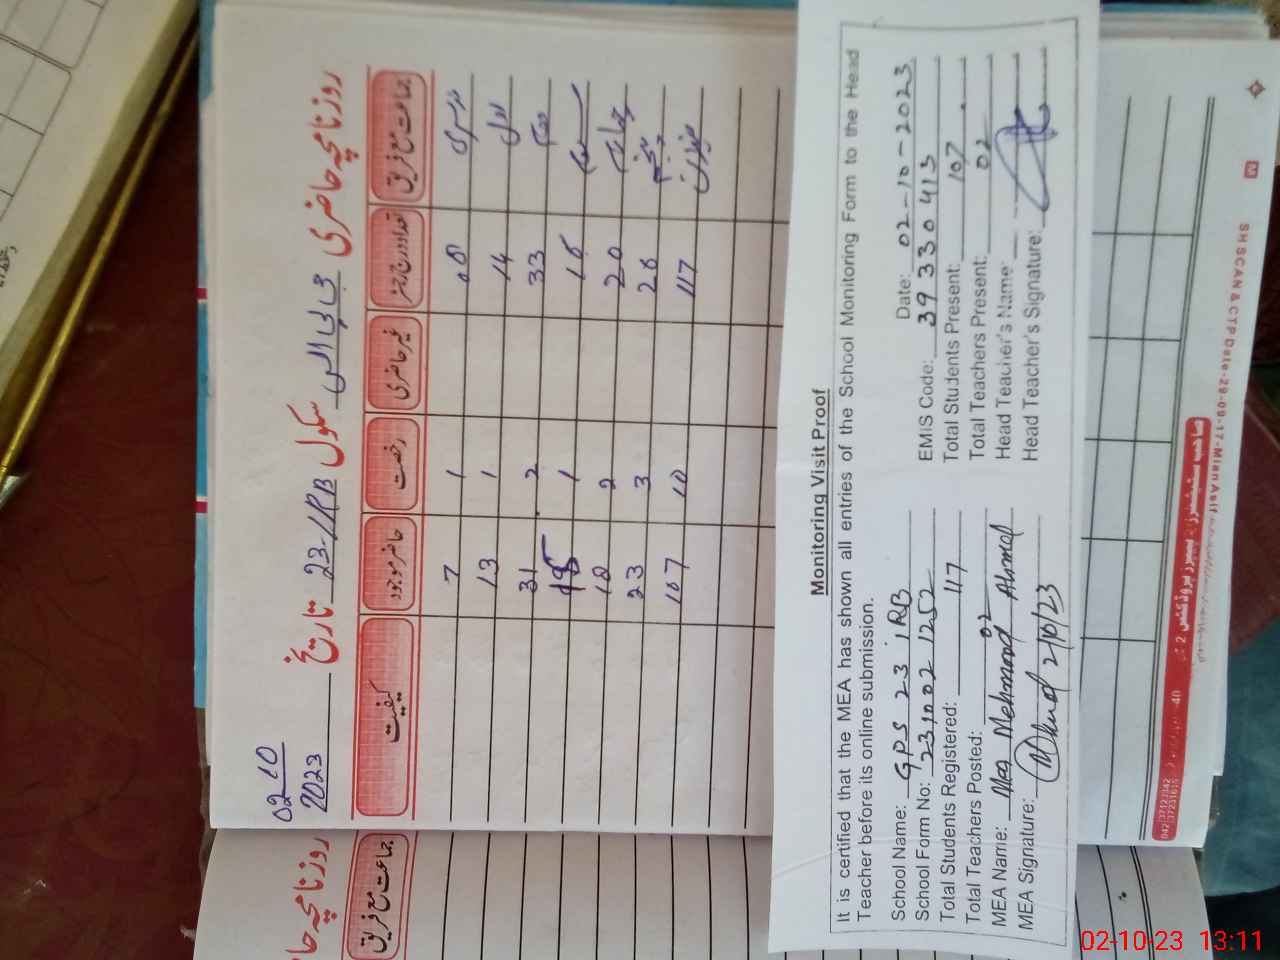 روزنامچہ حاضری جی پی ایس سکول 23-/RB تاریخ 02-10 2023
جماعت مع فریق تعداد مندرجہ رجسٹر غیر حاضری رخصت حاضر موجود کیفیت
08 1 7
اول 14 1 13
دوم 33 2 31
سوم 16 1
چہارم 20 2 18
پنجم 26 3 23
میزان 117 10 107
Monitoring Visit Proof
It is certified that the MEA has shown all entries of the School Monitoring Form to the Head
Teacher before its online submission.
Date: 02-10-2023
School Name: GPS 23 /RB EMIS Code: 39330413
School Form No: 2310021252 Total Students Present: 107
Total Students Registered: 117 Total Teachers Present: 02
Total Teachers Posted: 02 Head Teacher's Name:
MEA Name: Mea Mehmood Ahmed Head Teacher's Signature:
MEA Signature: 2/10/23
SH SCAN & CTP Date-29-09-17-Mian Asif
روزنامچہ حا
جماعت مع فریق
02-10-23 13:11